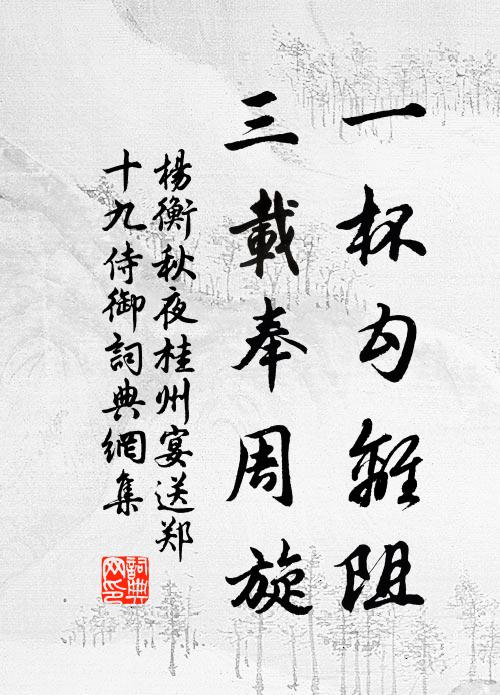 一杯勾離阻
三載奉周旋
楊衡秋夜桂州宴送郑
十九侍御詞典網集
詞典
网印